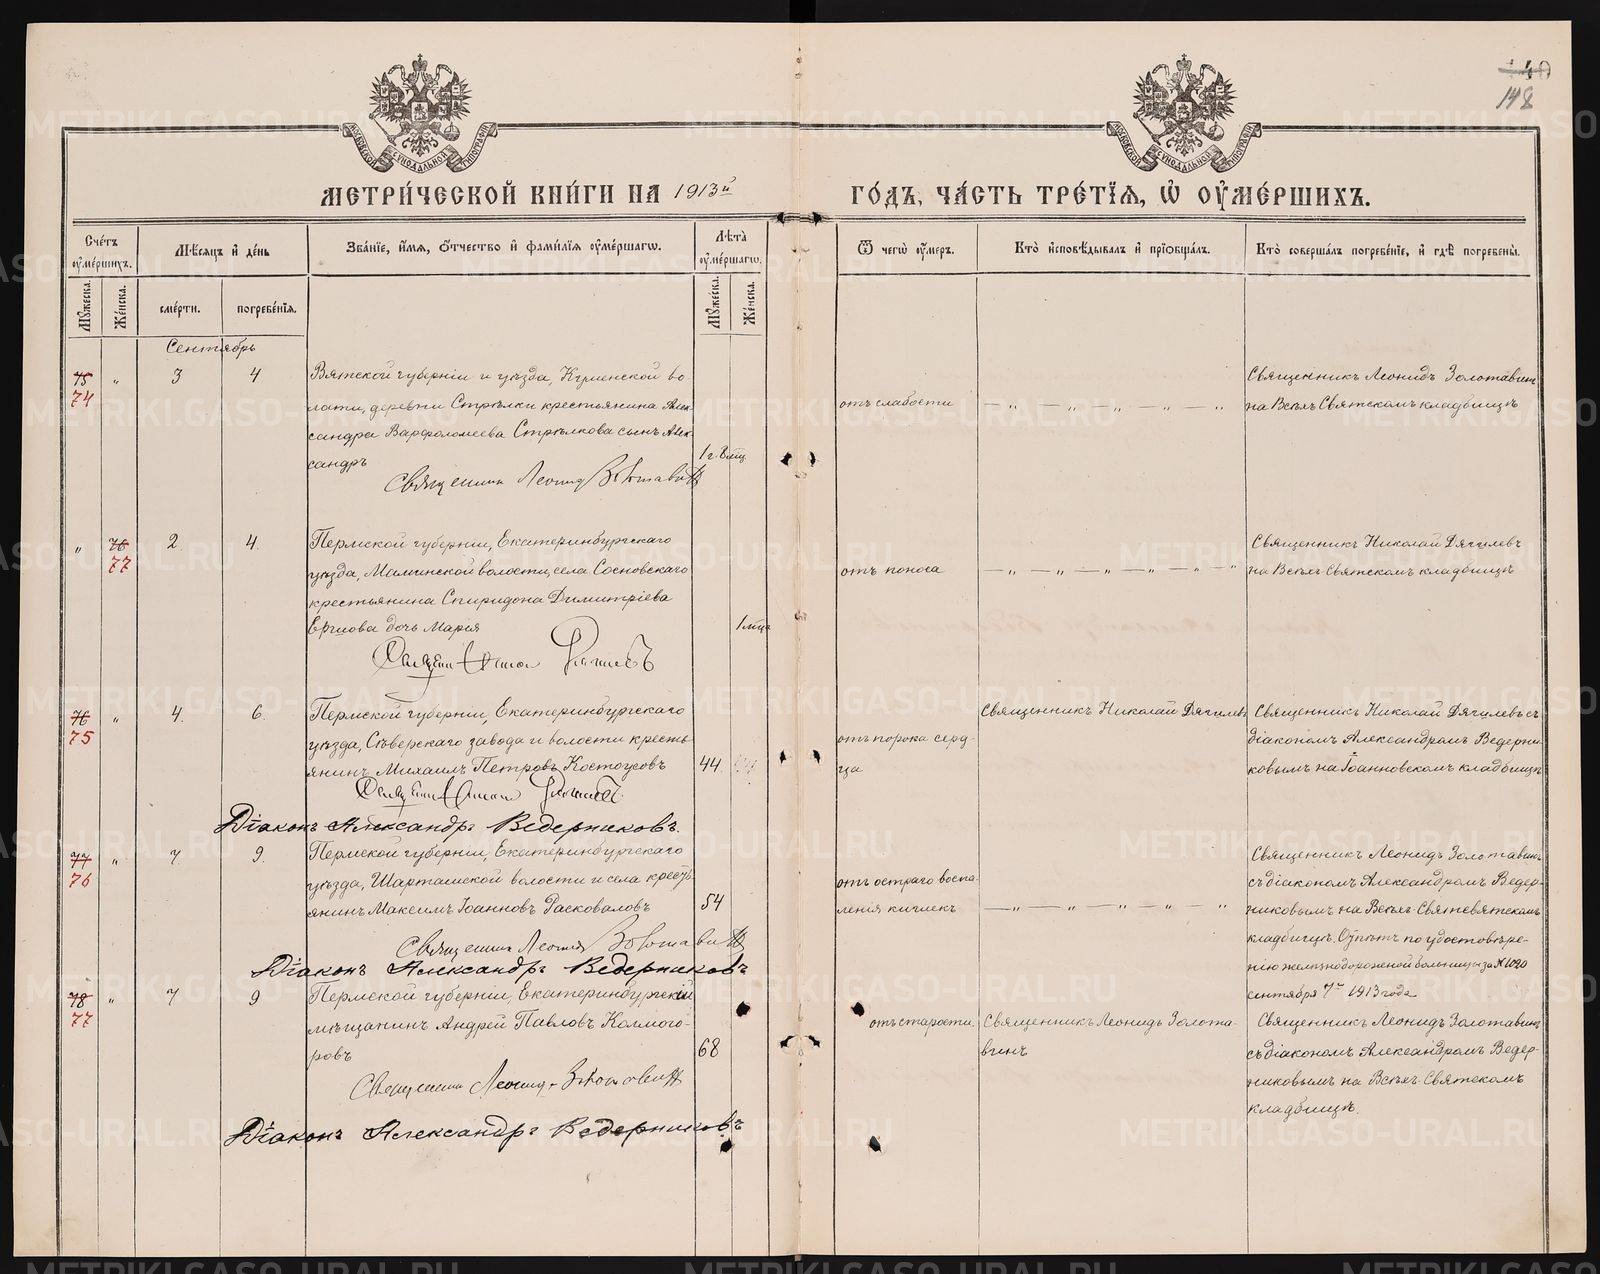 140
148
МОСКОВСКОЙ СѴНОДАЛЬНОЙ ТИПОГРАФІИ
МОСКОВСКОЙ СѴНОДАЛЬНОЙ ТИПОГРАФІИ
МЕТРИ́ЧЕСКОЙ КНИ́ГИ НА 1913й
ГО́ДЪ, ЧА́СТЬ ТРЕ́ТЇѦ, Ѡ҆ ОУ҆МЕ́РШИХЪ.
Сче́тъ оу҆ме́ршихъ.
Мѣ́сѧцъ и҆ де́нь
Зва́нїе, и҆́мѧ, ѻ҆́тчество и҆ фами́лїѧ оу҆ме́ршагѡ.
Лѣ̀та оу҆ме́ршагѡ.
Ѿ чегѡ̀ оу҆́меръ.
Кто̀ и҆сповѣ́дывалъ и҆ прїѻбща́лъ.
Кто̀ соверша́лъ погребе́нїе, и҆ гдѣ̀ погребены̀.
Мꙋ́жеска.
Же́нска.
сме́рти.
погребе́нїѧ.
Мꙋ́жеска.
Же́нска.
Сентябрь
75 74 " 3 4
Вятской губерніи и уѣзда, Куменской во-
лости, деревни Стрѣлки крестьянина Алек-
сандра Варфоломеева Стрѣлкова сынъ Алек-
сандръ
1 г. 8 мц.
Священникъ Леонидъ Золотавинъ
отъ слабости
— " — " — " — " — "
Священникъ Леонидъ Золотавинъ
на Всѣхъ Святскомъ кладбищѣ
" 76 77 2 4.
Пермской губерніи, Екатеринбургскаго
уѣзда, Маминской волости, села Сосновскаго
крестьянина Спиридона Димитріева
дочь Марія
1 мца
Священникъ Николай Дягилевъ
отъ поноса
— " — " — " — " — "
Священникъ Николай Дягилевъ
на Всѣхъ Святскомъ кладбищѣ
76 75 " 4. 6.
Пермской губерніи, Екатеринбургскаго
уѣзда, Сѣверскаго завода и волости кресть-
янинъ Михаилъ Петровъ Костоусовъ
44
Священникъ Николай Дягилевъ
Діаконъ Александръ Ведерниковъ.
отъ порока серд-
ца
Священникъ Николай Дягилевъ
Священникъ Николай Дягилевъ съ
діакономъ Александромъ Ведерни-
ковымъ на Іоанновскомъ кладбищѣ
77 76 " 7 9.
Пермской губерніи, Екатеринбургскаго
уѣзда, Шарташской волости и села кресть-
янинъ Максимъ Іоанновъ Расковаловъ
54
Священникъ Леонидъ Золотавинъ
Діаконъ Александръ Ведерниковъ
отъ остраго воспа-
ленія кишекъ
— " — " — " — " — "
Священникъ Леонидъ Золотавинъ
съ діакономъ Александромъ Ведер-
никовымъ на Всѣхъ Святсвятскомъ
кладбищѣ. Отпѣтъ по удостовѣре-
нію желѣзнодорожной больницы за № 1020
сентября 7го 1913 года
78 77 " 7 9
Пермской губерніи, Екатеринбургскій
мѣщанинъ Андрей Павловъ Колмого-
ровъ
68
Священникъ Леонидъ Золотавинъ
Діаконъ Александръ Ведерниковъ
отъ старости
Священникъ Леонидъ Золота-
винъ
Священникъ Леонидъ Золотавинъ
съ діакономъ Александромъ Ведер-
никовымъ на Всѣхъ Святскомъ
кладбищѣ.
METRIKI.GASO-URAL.RU